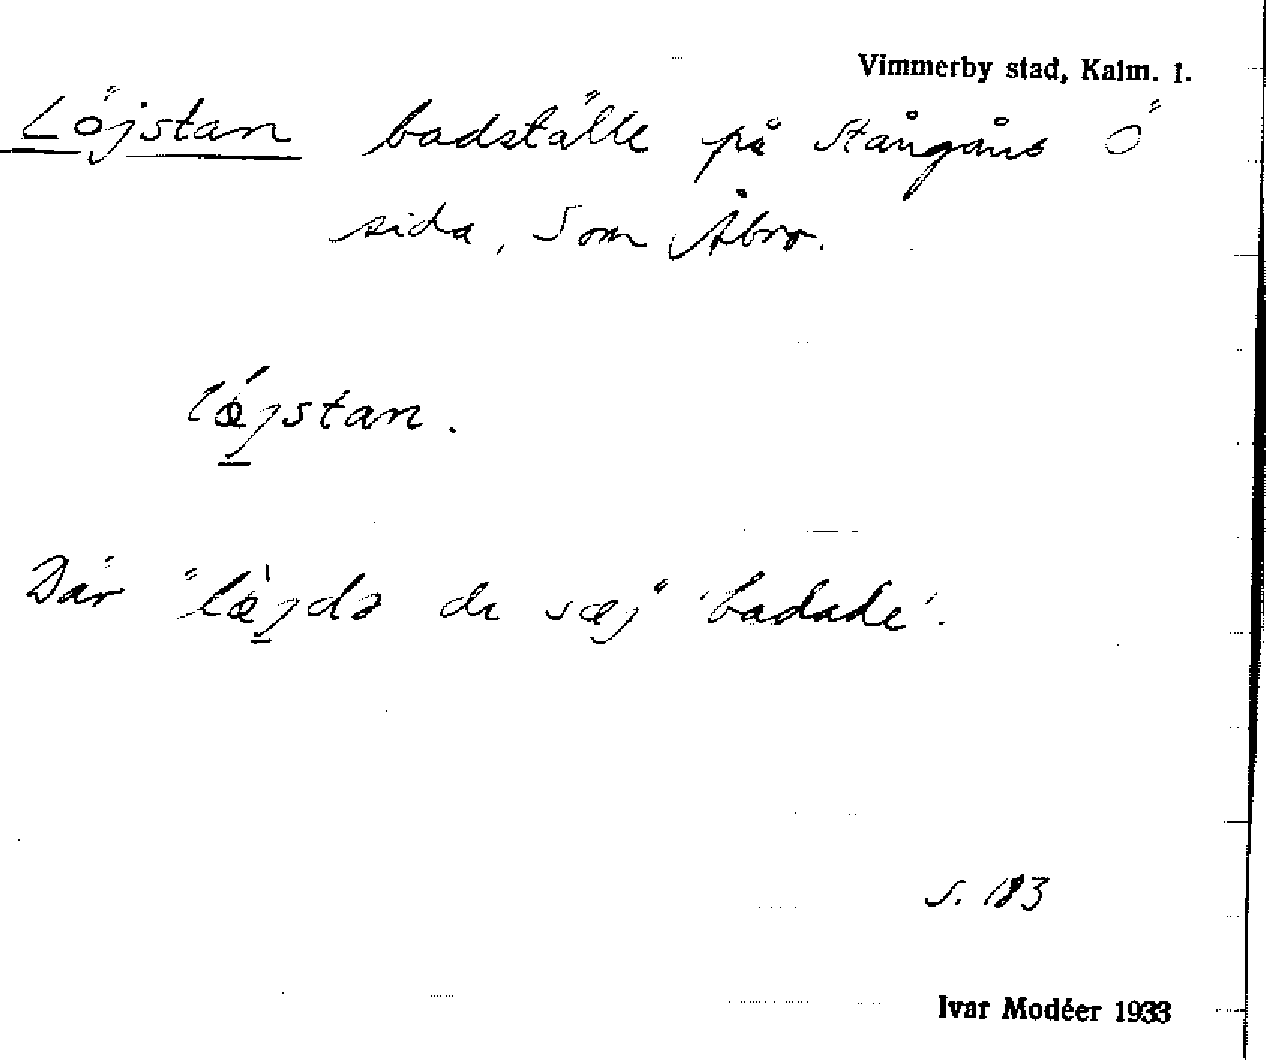 Vimmerby stad, Kalm. l.
Löjstan badställe på Stångåns Ö
sida, S om Åbro.
lǿjstan.
Där "lœ̀jdə de sœj" 'badade'.
s. 183
Ivar Modéer 1933